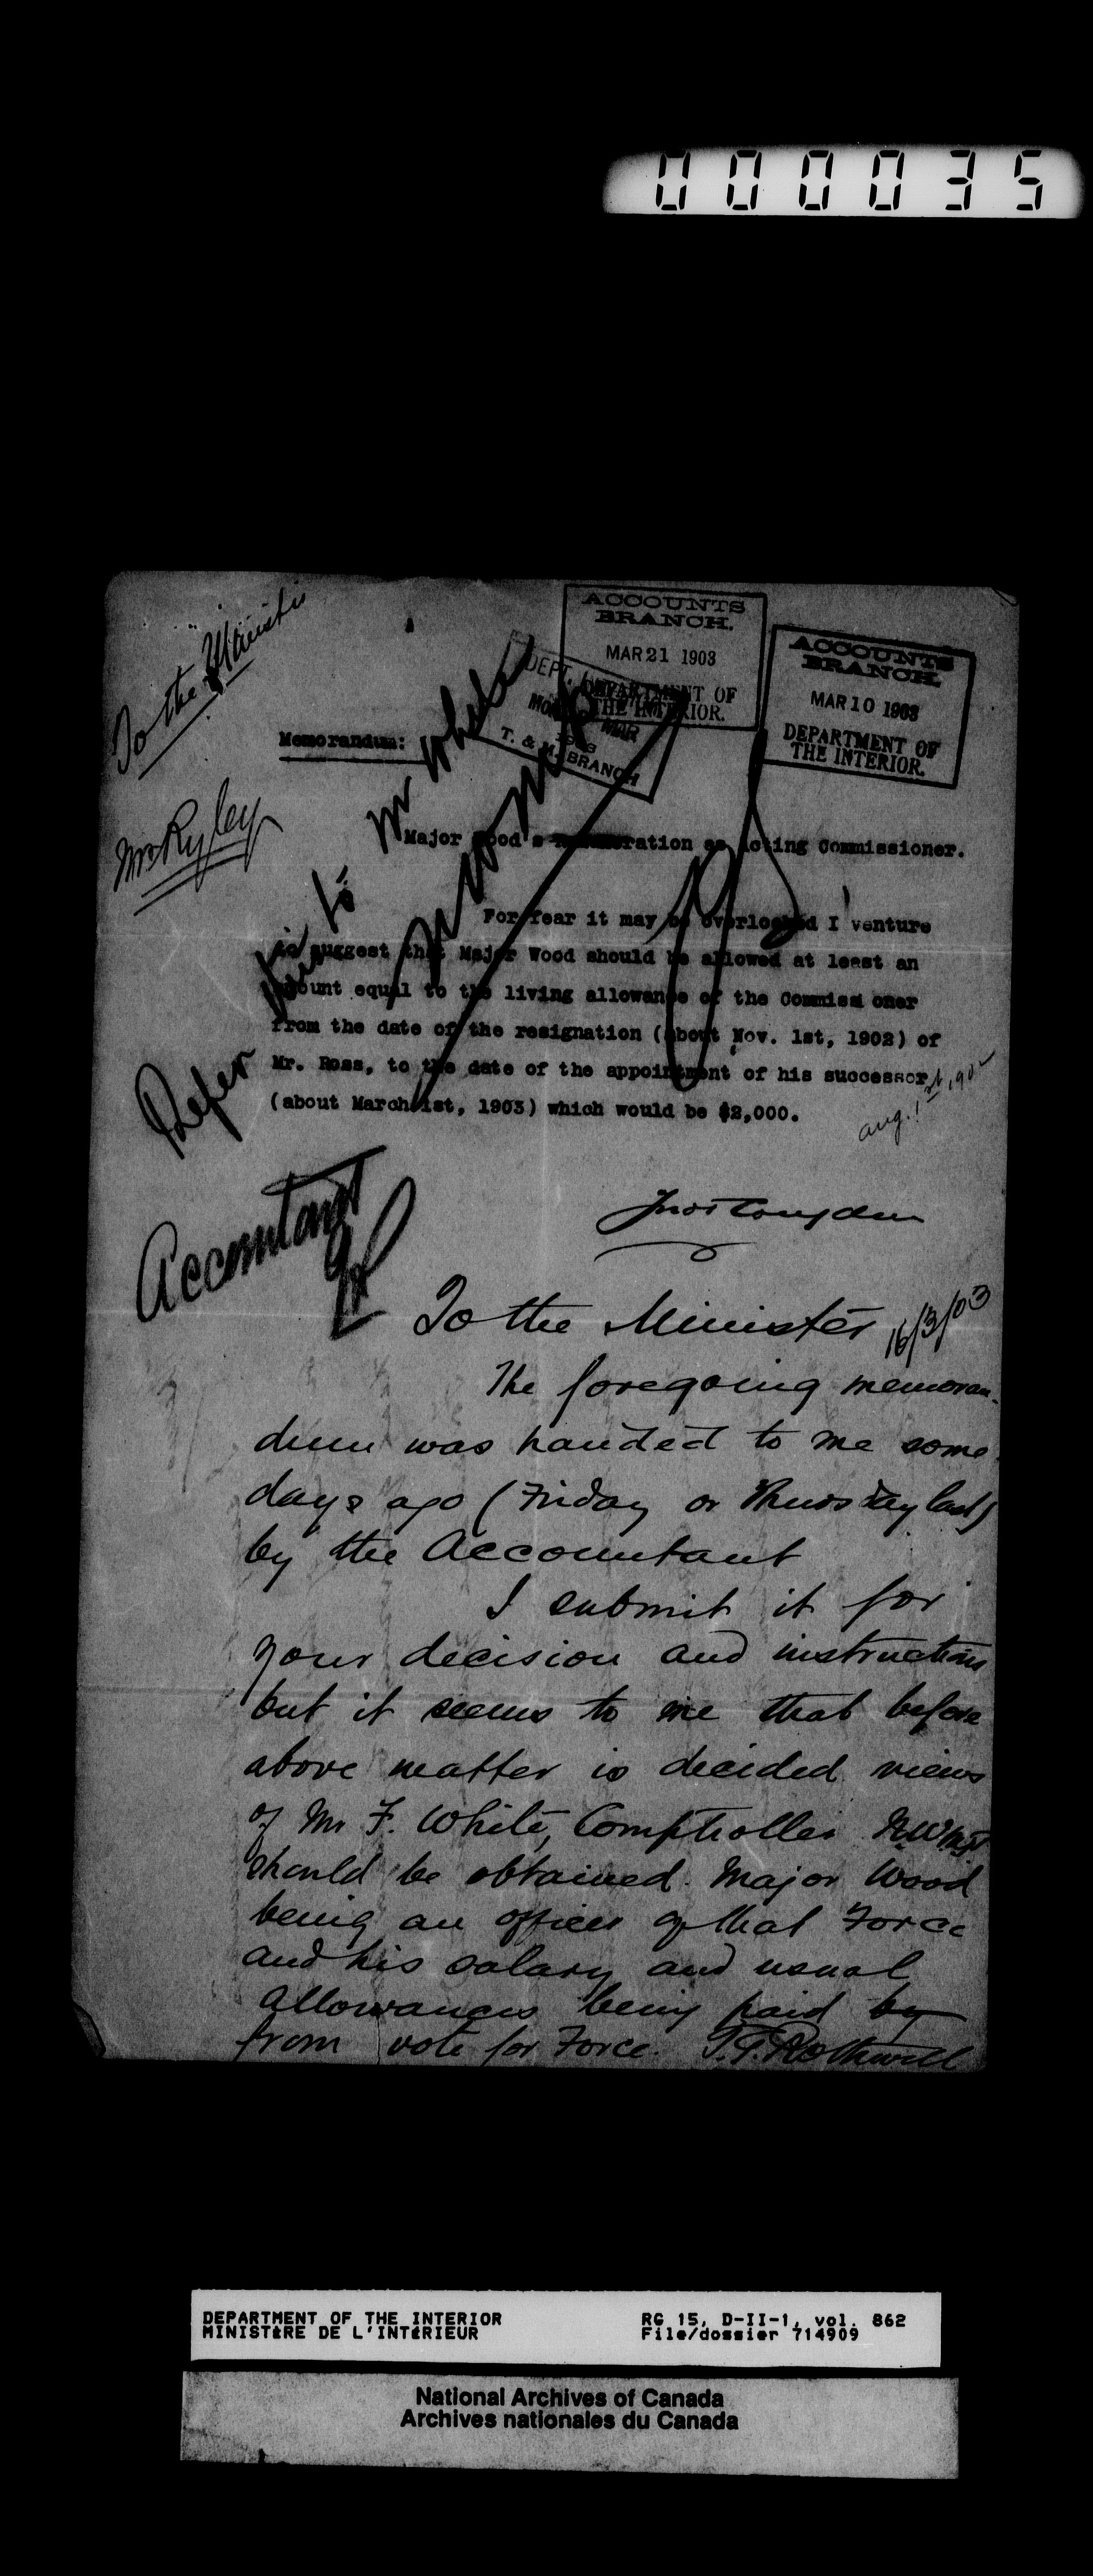 000035
To the Minister
Mr Ryley
ACCOUNTS
BRANCH.
MAR 21 1903
DEPARTMENT OF
THE INTERIOR.
ACCOUNTS
BRANCH.
MAR 10 1903
DEPARTMENT OF
THE INTERIOR.
DEPT.
T. & M. BRANCH
Memorandum:
Refer this to Mr White
Major Wood's Remuneration as Acting Commissioner.
For fear it may be overlooked I venture
to suggest that Major Wood should be allowed at least an
amount equal to the living allowance of the Commissioner
from the date of the resignation (about Nov. 1st, 1902) of
Mr. Ross, to the date of the appointment of his successor
(about March 1st, 1903) which would be $2,000.
aug. 1st, 190
Accountant
To the Minister 16/3/03
The foregoing memoran-
dum was handed to me some
days ago (Friday or Thursday last)
by the Accountant
I submit it for
your decision and instructions
but it seems to me that before
above matter is decided views
of Mr F. White, Comptroller N.W.M.P.
should be obtained. Major Wood
being an officer of that Force
and his salary and usual
allowances being paid by
from vote for Force. T.G. Rothwell
DEPARTMENT OF THE INTERIOR
MINISTÈRE DE L'INTÉRIEUR
RG 15, D-II-1, vol. 862
File/dossier 714909
National Archives of Canada
Archives nationales du Canada